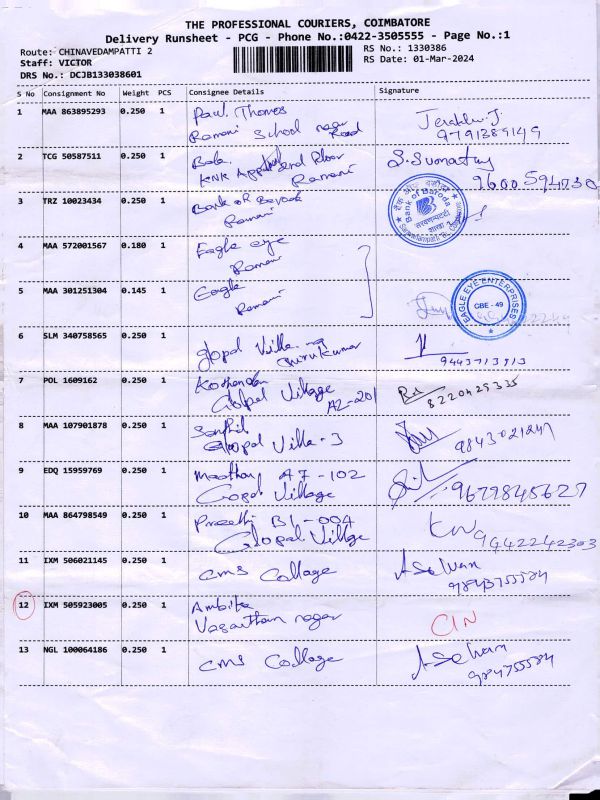 THE PROFESSIONAL COURIERS, COIMBATORE
Delivery Runsheet - PCG - Phone No.:0422-3505555 - Page No.:1
Route: CHINAVEDAMPATTI 2
RS No.: 1330386
Staff: VICTOR
RS Date: 01-Mar-2024
DRS No.: DCJB133038601
S No Consignment No Weight PCS Consignee Details Signature
1 MAA 863895293 0.250 1 Paul Thomas
Ramani School near Road
9791389149
2 TCG 50587511 0.250 1 Bala
KNK Appt 2nd floor
Ramani
9600594730
3 TRZ 10023434 0.250 1 Bank of Baroda
Ramani
Bank of Baroda
4 MAA 572001567 0.180 1 Eagle eye
Ramani
5 MAA 301251304 0.145 1 Eagle
Ramani
EAGLE EYE ENTERPRISES
CBE - 49
6 SLM 340758565 0.250 1 glopal Villa
Gurukumar
9443713913
7 POL 1609162 0.250 1
Glopal Village
A2-201
8220425335
8 MAA 107901878 0.250 1 Senthil
Gloopal Villa-3
9843021247
9 EDQ 15959769 0.250 1 A7-102
Gopal Village
10 MAA 864798549 0.250 1 Preethi B1-004
Glopal Village
9442242303
11 IXM 506021145 0.250 1 cms Collage
A Selvan
12 IXM 505923005 0.250 1 Ambika
Vasantham nagar
CIN
13 NGL 100064186 0.250 1 cms Collage
A Selvan